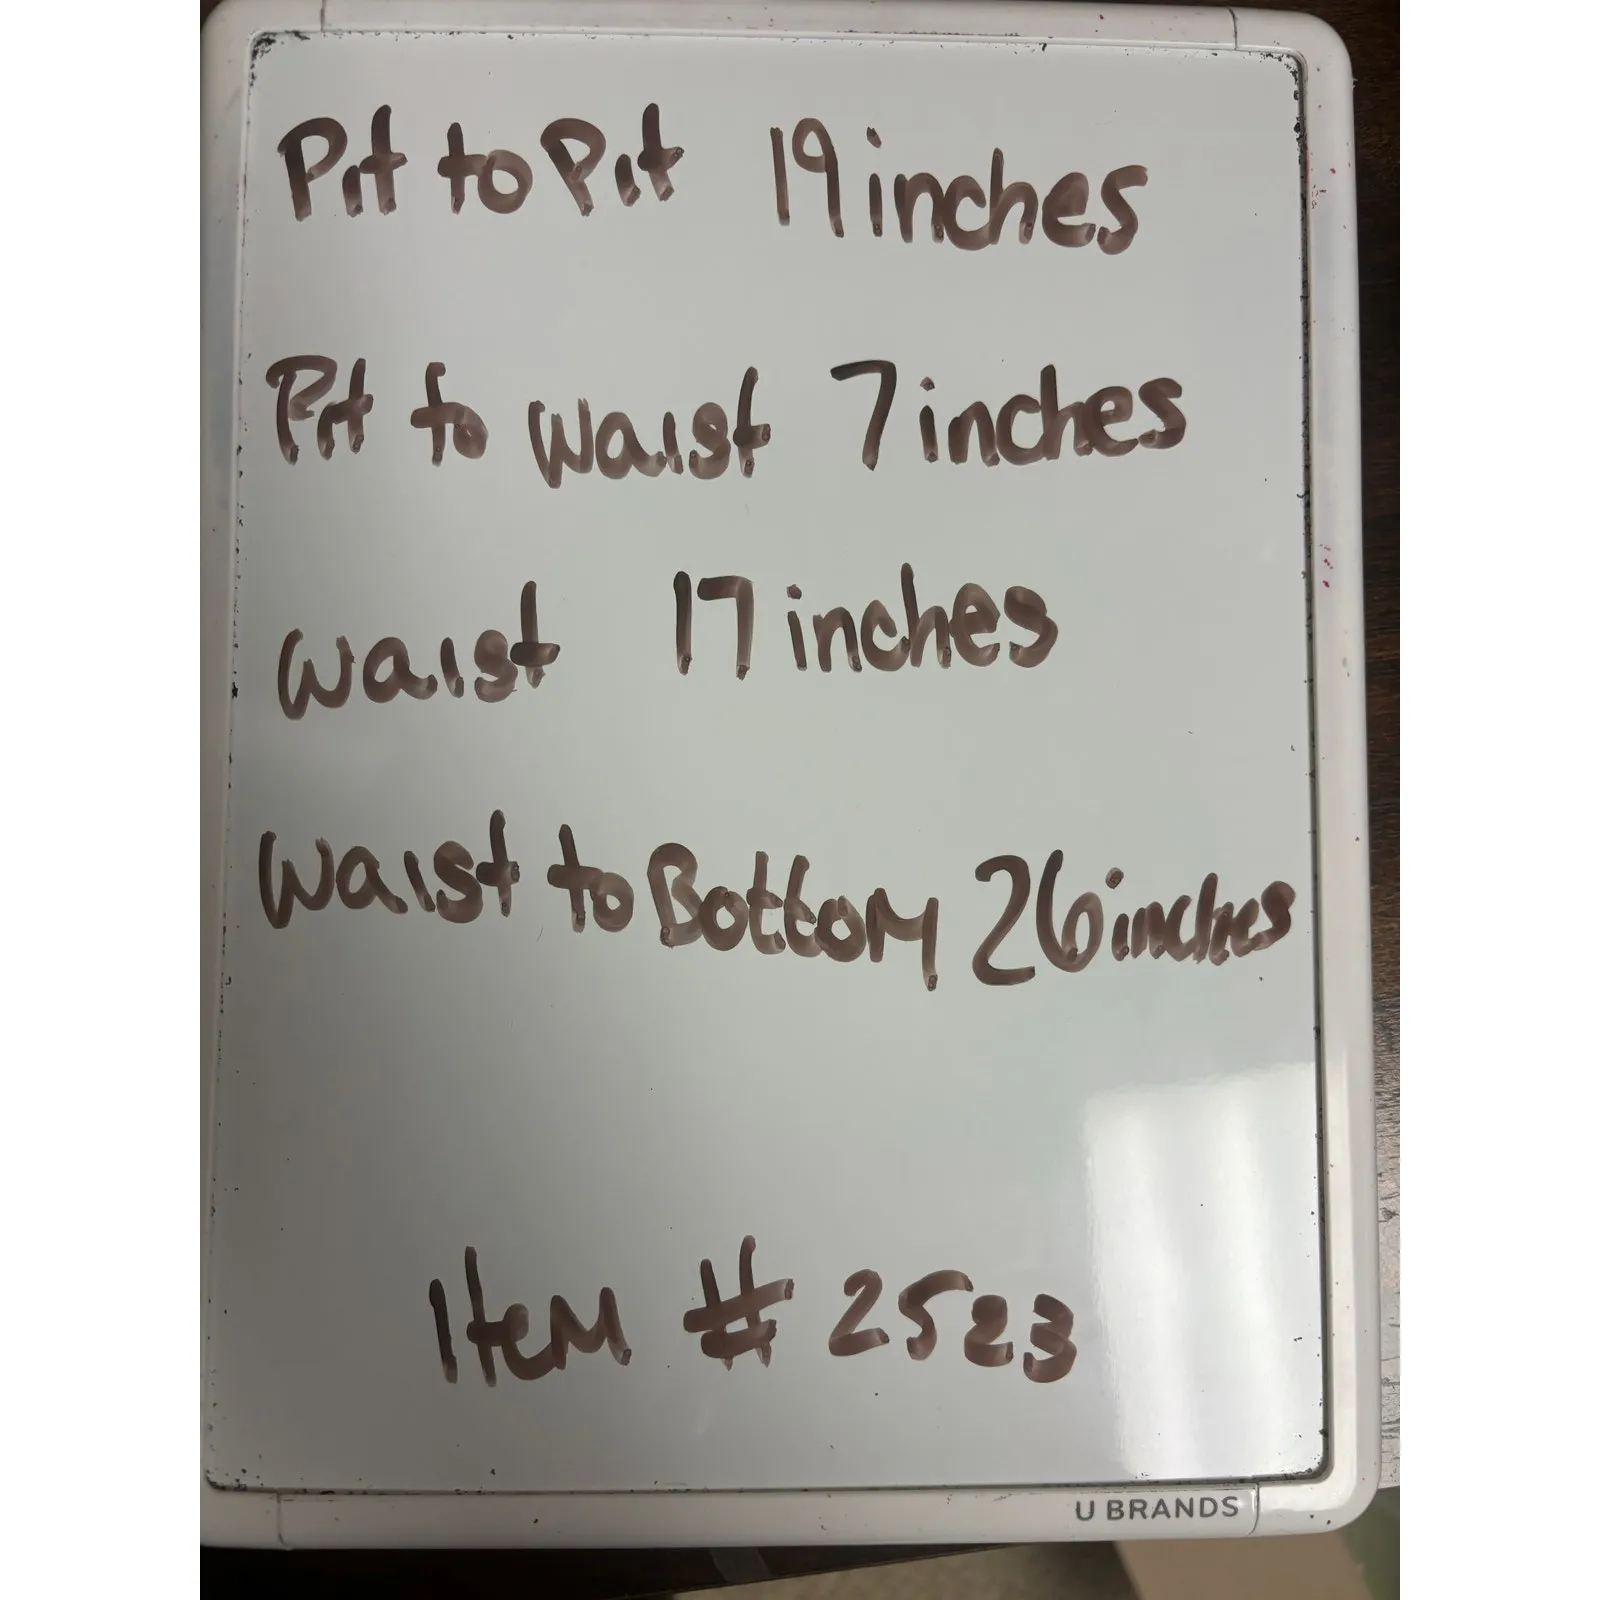 Pit to Pit 19 inches
Pit to Waist 7 inches
Waist 17 inches
Waist to Bottom 26 inches
Item # 2523
U BRANDS